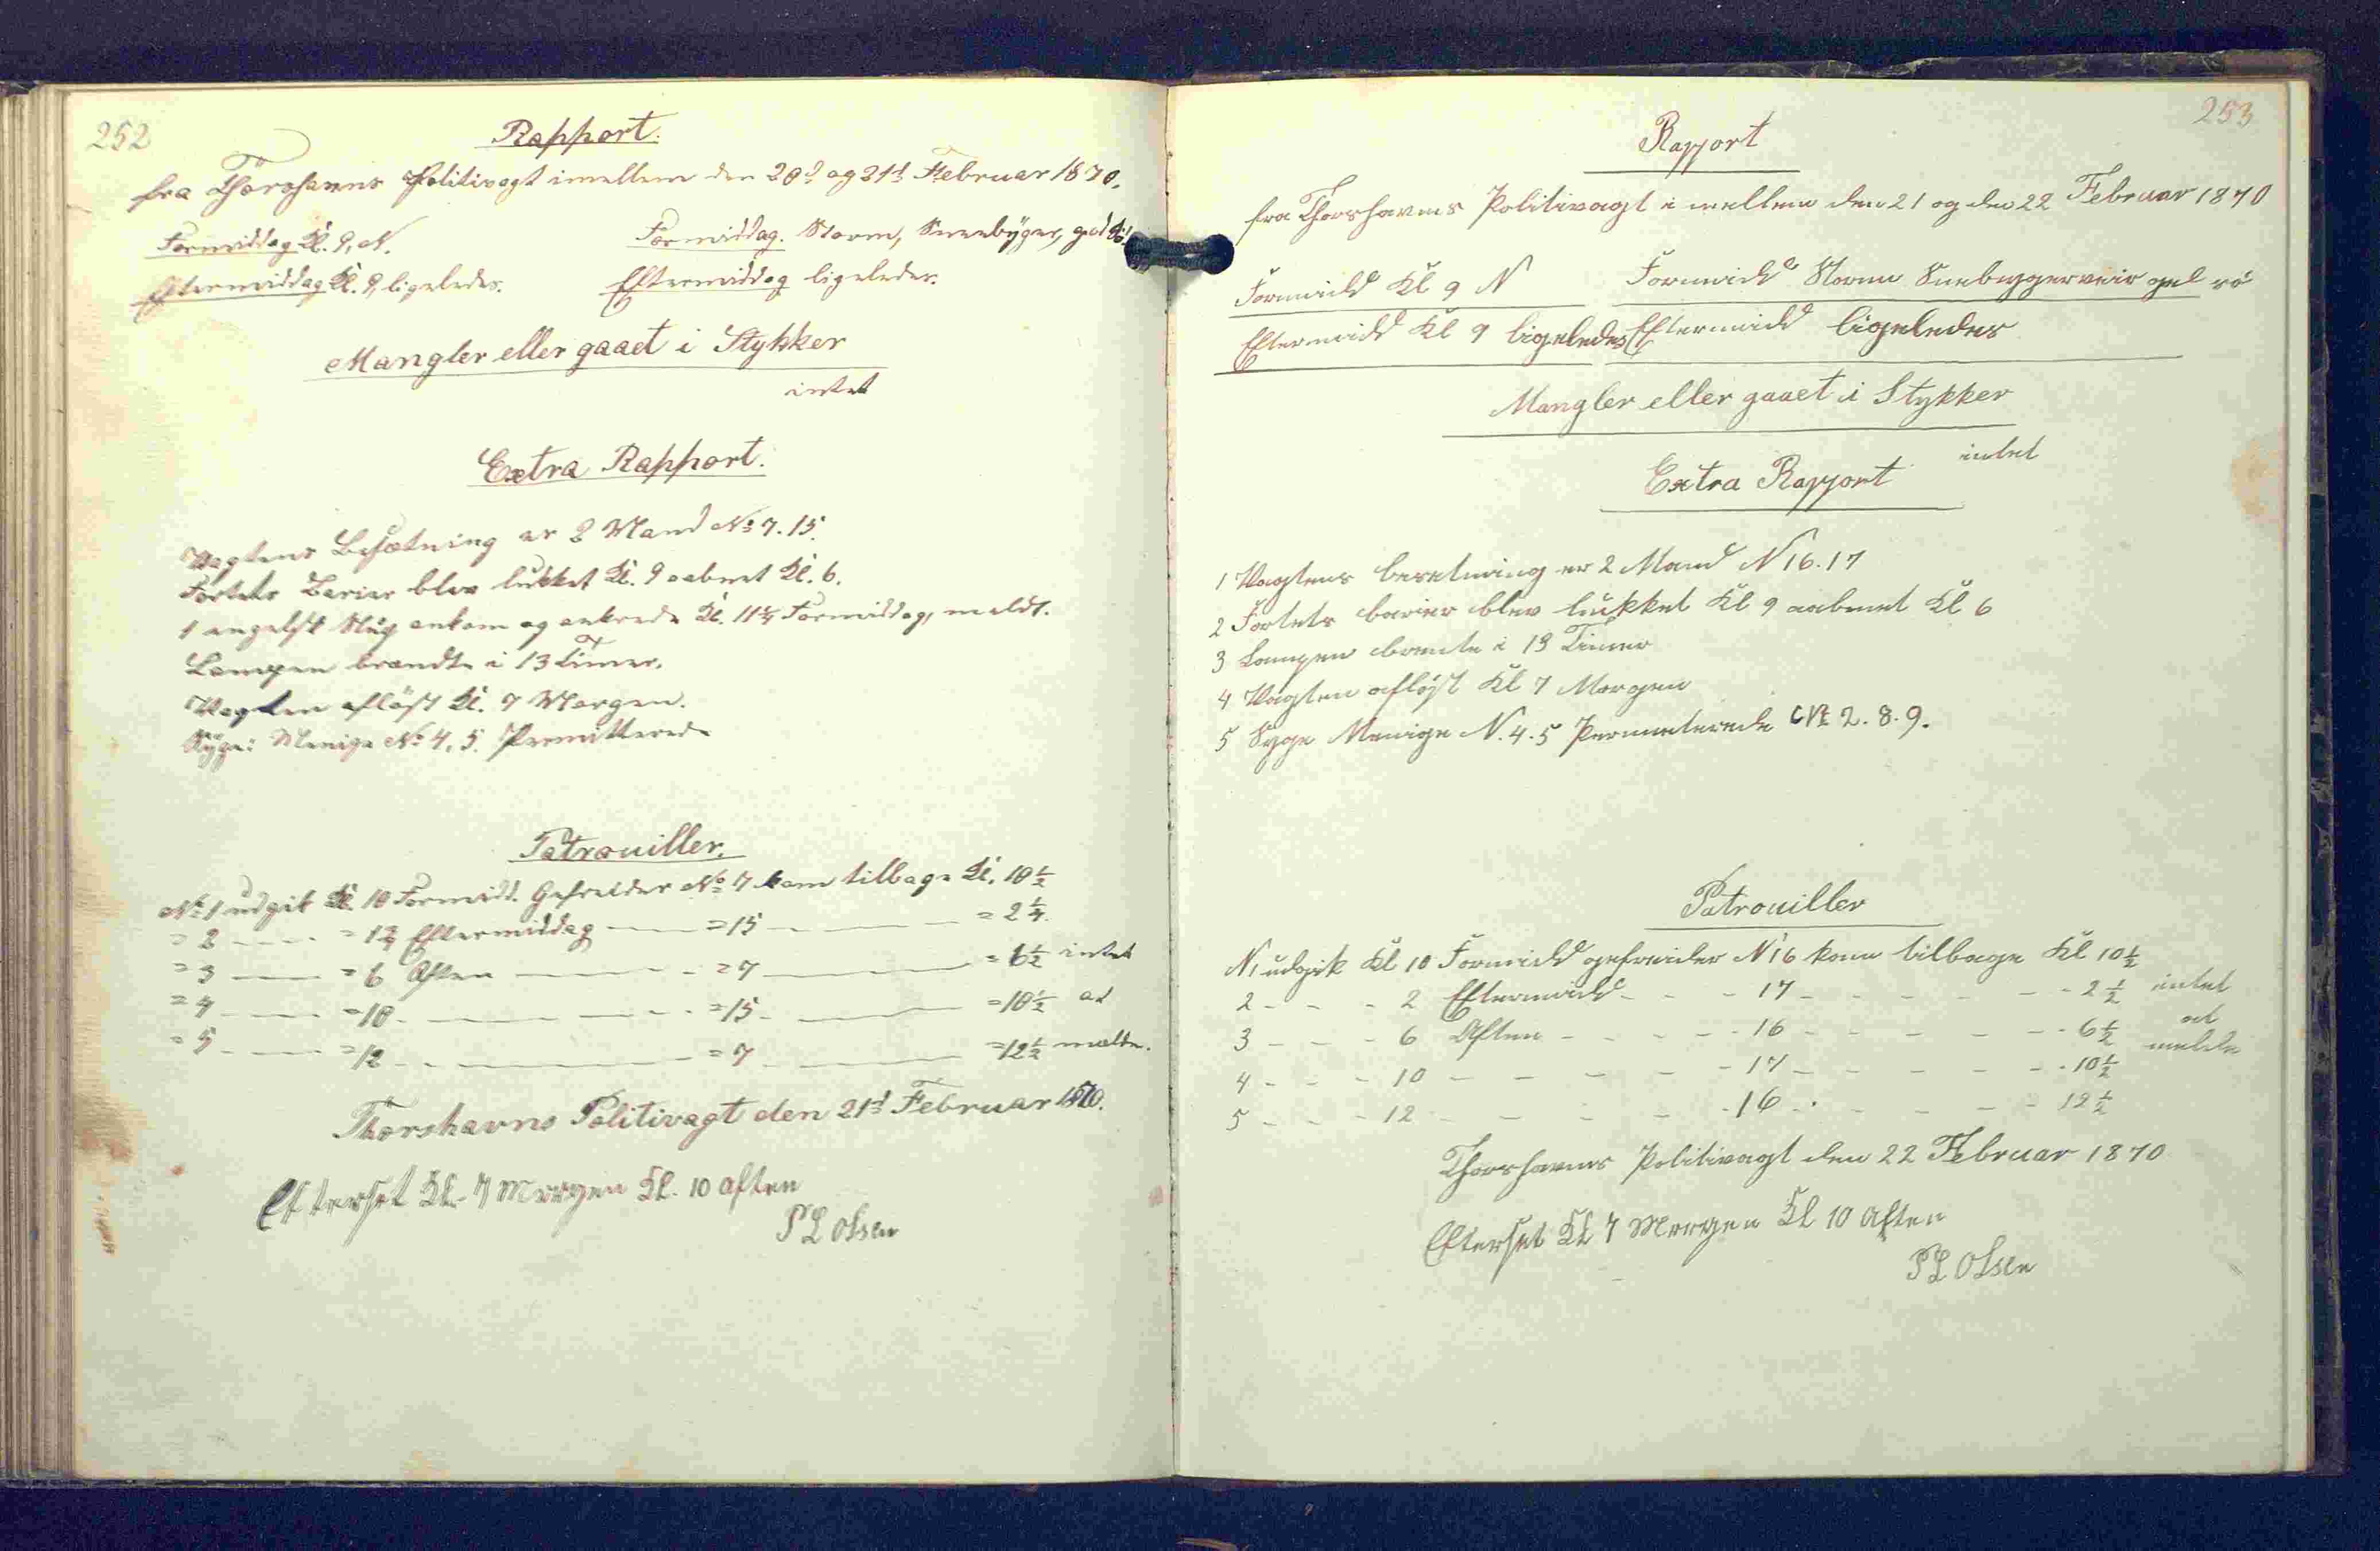 252
Rapport.
fra Thorshavns Politivagt imellem den 20d og 21d Februar 1870.
Formiddag Kl. 9, N.
Formiddag. Storm, Sneebyger, gul
Eftermiddag Kl. 9, ligeledes.
Eftermiddag ligeledes.
Mangler eller gaaet i Stykker
intet
Extra Rapport.
Vagtens Besætning er 2 Mand No 7. 15.
Fortets Barier blev lukket Kl. 9 aabnet Kl. 6.
1 engelsk Slug ankom og ankrede Kl. 11 1/4 Formiddag, meldt.
Lampen brændte i 13 Timer.
Vagten afløst Kl. 7 Morgen.
Syge: Menige No 4, 5. Permitterede
Patrouiller.
No 1 udgik Kl. 10 Formidd. Gefreider No 7 kom tilbage Kl. 10 1/2
= 2 Eftermiddag = 15 = 2 1/4.
= 3 = 6 Aften = 7 = 6 1/2 intet
= 4 = 10 = 15 = 10 1/2 at
= 5 = 12 = 7 = 12 1/2 melde.
Thorshavns Politivagt den 21d Februar 1870.
Efterset Kl. 7 Morgen Kl. 10 Aften
P L Olsen
253
Rapport
fra Thorshavns Politivagt i mellem den 21 og den 22 Februar 1870
Formidd Kl 9 N
Formidd Storm Snebygerveir gul rö
Eftermidd Kl 9 ligeledes
Eftermidd ligeledes
Mangler eller gaaet i Stykker
intet
Extra Rapport
1 Vagtens besetning er 2 Mand N 16. 17
2 Fortets barier blev lukket Kl 9 aabnet Kl 6
3 Lampen brente i 13 Timer
4 Vagten afløst Kl 7 Morgen
5 Syge Menige N. 4. 5 Permeterede No 2. 8. 9.
Patrouiller
N1 udgik Kl 10 Formidd gefreider N 16 kom tilbage Kl 10 1/2
2 - - - 2 Eftermidd - - - 17 - - - - - - 2 1/2 intet
3 - - - 6 Aften - - - - 16 - - - - - - 6 1/2 at
4 - - - 10 - - - - - - 17 - - - - - - 10 1/2 melde
5 - - - 12 - - - - - 16 - - - - - 12 1/2
Thorshavns Politivagt den 22 Februar 1870
Efterset Kl 7 Morgen Kl 10 Aften
P L Olsen